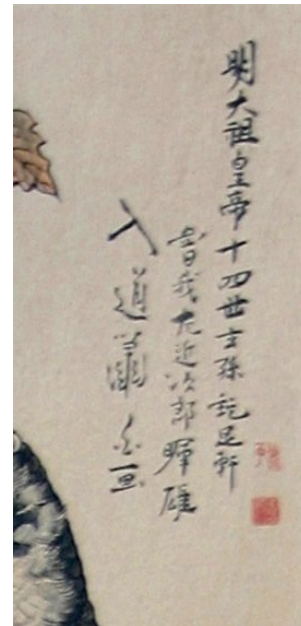 明大祖皇帝十四世玄孫蛇足軒
曽我左近次郎暉雄
入道蕭白画